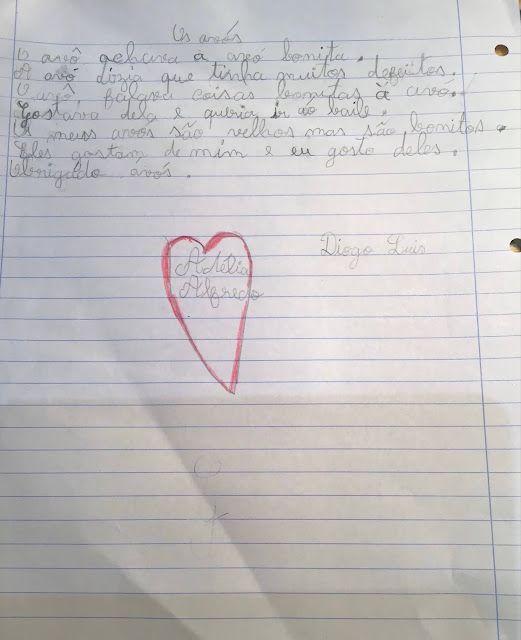 Os avós
O avô achava à avó bonita.
A avó dizia que tinha muitos defeitos.
O avô, falava coisas bonitas à avo.
Gostava dela e queria ir ao baile.
Os meus avós são velhos mas são bonitos.
Eles gostam de mim e eu gosto deles.
Obrigado avós.
Diogo Luis
Adélia
Alfredo